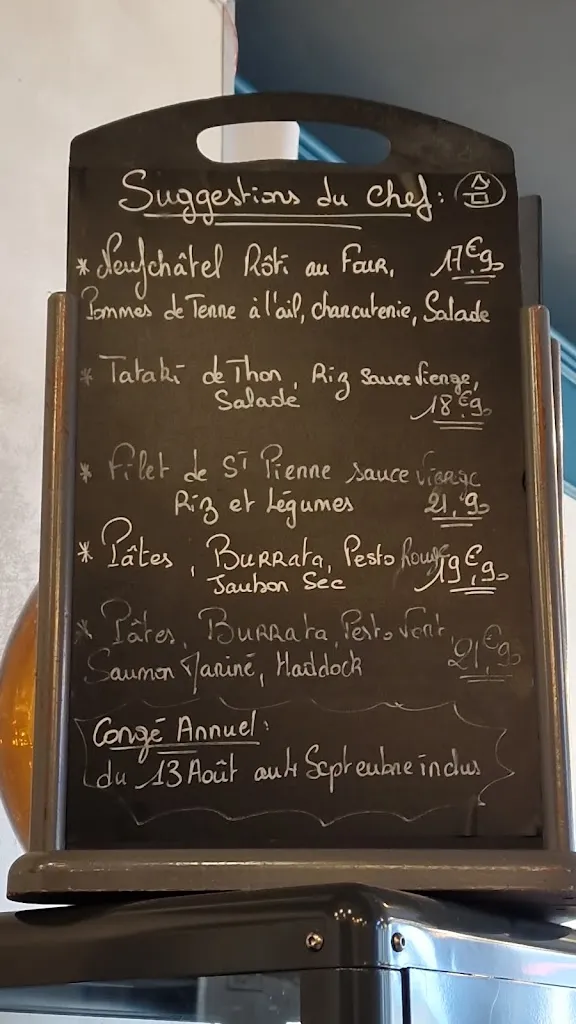 Suggestions du chef :
* Neufchâtel Rôti au Four, 17€90
Pommes de Terre à l'ail, charcuterie, Salade
* Tataki de Thon, Riz Sauce Vierge,
Salade 18€90
* Filet de St Pierre sauce Vierge
Riz et Légumes 21,90
* Pâtes, Burrata, Pesto Rouge 19€,90
Jambon Sec
* Pâtes, Burrata, Pesto Vert,
Saumon Mariné, Haddock 21€,90
Congé Annuel :
du 13 Août au 4 Septembre inclus